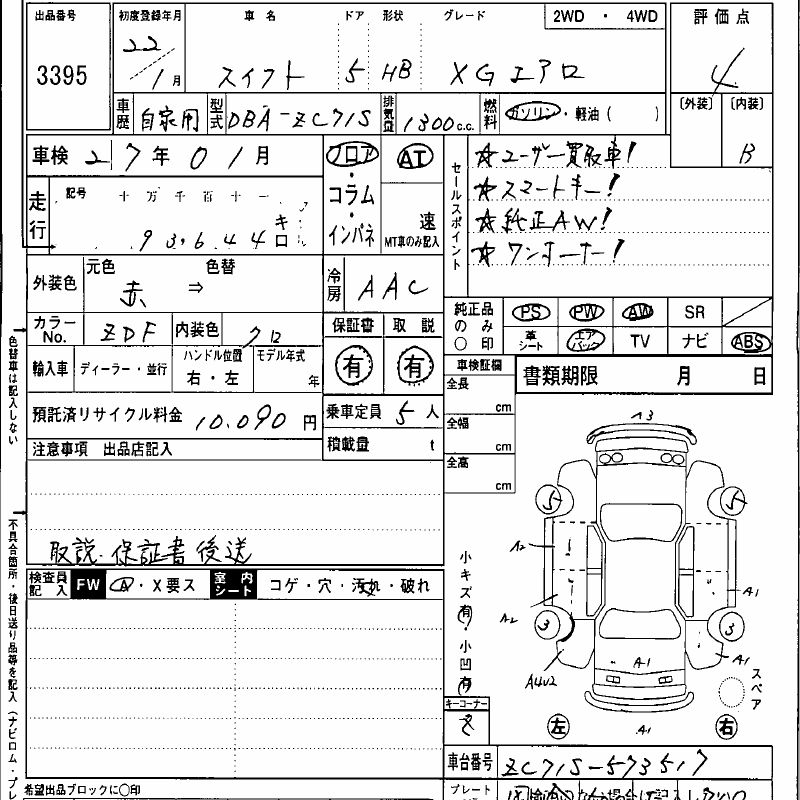 出品番号
3395
初度登録年月
22/1月
車名
スイフト
ドア
5
形状
HB
グレード
XGエアロ
2WD ・ 4WD
評価点
4
〔外装〕 〔内装〕
B
車歴 自家用
型式 DBA-ZC71S
排気量 1300c.c.
燃料 ガソリン・軽油( )
車検 27年01月
フロア
コラム
・
インパネ
AT
速
MT車のみ記入
セールスポイント
☆ユーザー買取車!
☆スマートキー!
☆純正AW!
☆ワンオーナー!
走行
記号 十万千百十一
93,644キロ
外装色
元色 色替
赤 ⇒
冷房 AAC
カラーNo. ZDF
内装色 クロ
保証書 取説
有 有
純正品のみ○印
PS PW AW SR
革シート エアバック TV ナビ ABS
輸入車 ディーラー・並行
ハンドル位置
右・左
モデル年式
年
車検証欄
全長 cm
全幅 cm
全高 cm
書類期限 月 日
預託済リサイクル料金 10.090円
乗車定員 5人
積載量 t
注意事項 出品店記入
取説・保証書後送
色替車は記入しない
不具合箇所・後日送り品等を記入(ナビロム・プレ
検査員記入 FW A・X要ス
室内シート コゲ・穴・汚れ・破れ
A3
5 5
A2
A1
A2
3 3
A1
A4U2
A1
A1
小キズ有・小凹有
スペア
キーコーナー
左 右
車台番号 ZC71S-573517
希望出品ブロックに○印
プレート